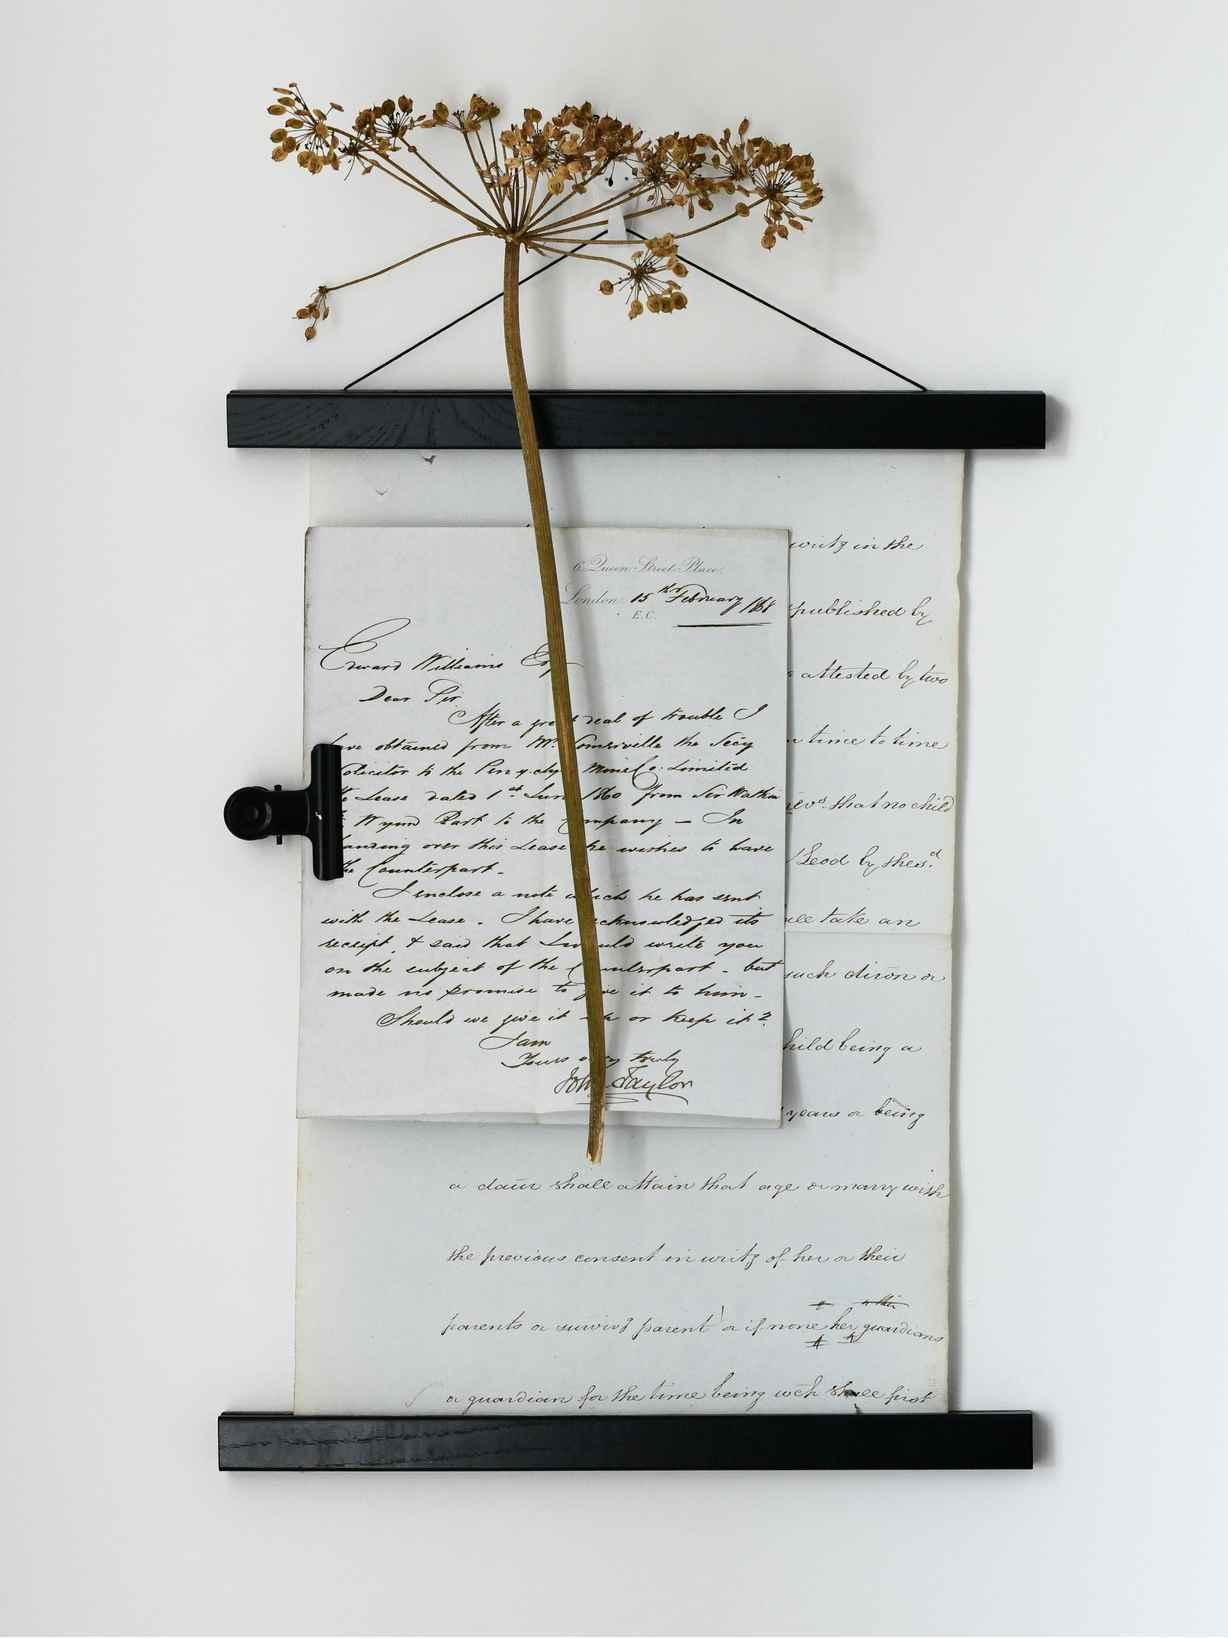 6 Queen Street Place,
London, 15th February
E.C.
Edward Williams Esq
Dear Sir
After a great deal of trouble I
have obtained from Mr. Somerville the Secy
Solicitor to the Mine Co. Limited
the Lease dated 1st June 1860 from Sir Watkin
Wynn Bart to the Company — In
handing over this Lease he wishes to have
the Counterpart.
I enclose a note which he has sent
with the Lease. I have acknowledged its
receipt, & said that I would write you
on the subject of the Counterpart - but
made no promise to give it to him -
Should we give it up or keep it?
I am
Yours very truly
John Taylor
writg in the
published by
attested by two
time to time
that no child
by the sd.
take an
such dieon or
child being a
years or being
a daur shall attain that age or marry with
the previous consent in writg of her or their
parents or survivg parent or if none her guardians
or guardian for the time being wch shall first